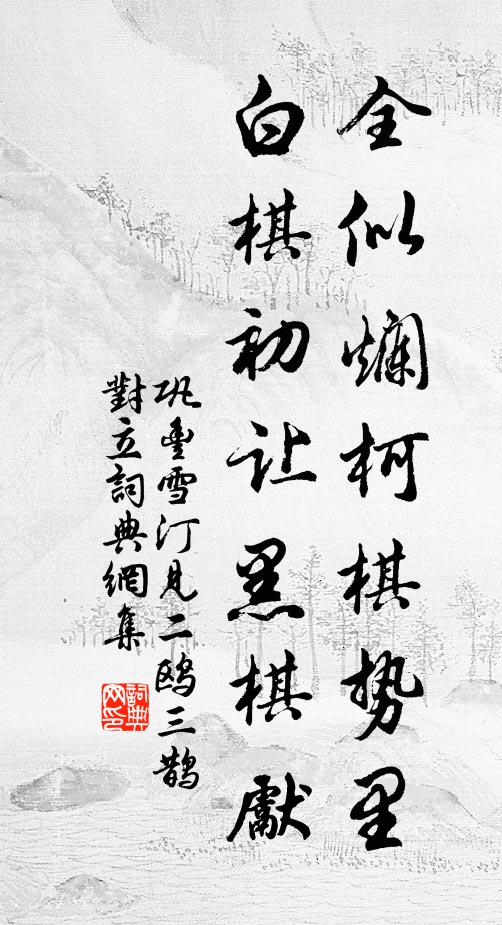 全似爛柯棋势里
白棋初让黑棋獻
巩豐雪汀见二鸥三鹊
對立詞典網集
詞典
网印